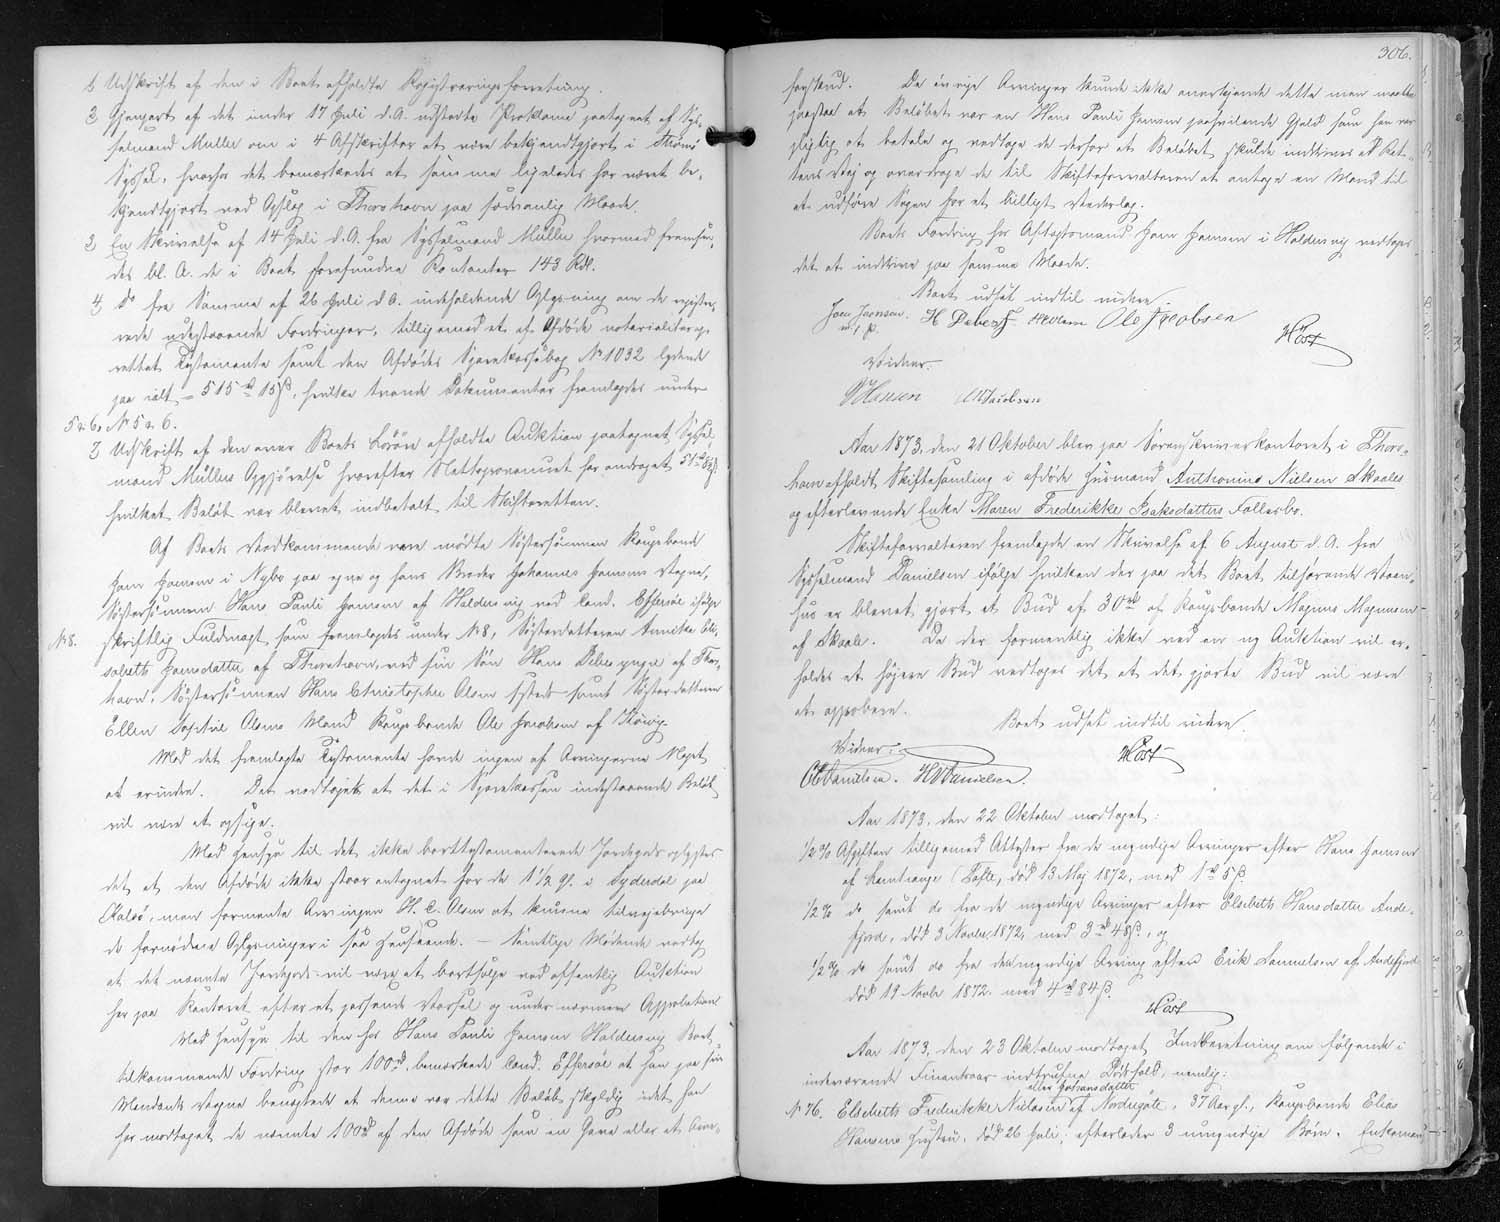 1 Udskrift af den i Boet afholdte Registreringsforretning.
2 Gjenpart af det under 17 Juli d.A. udstedte Proklama paategnet af Sys-
selmand Müller om i 4 Afskrifter at være bekjendtgjort i Strømø
Syssel, hvorfor det bemærkedes at samme ligeledes har været be-
kjendtgjort ved Opslag i Thorshavn paa sædvanlig Maade.
3 En Skrivelse af 14 Juli d.A. fra Sysselmand Müller hvormed fremsen-
des bl. A. de i Boet forefundne Kontanter 143 Rdl.
4 Do fra Samme af 26 Juli d.A. indeholdende Oplysning om de registre-
rede udestaaende Fordringer, tilligemed et af Afdøde notarialiter op-
rettet Testamente samt den Afdødes Sparekassebog No 1032 lydende
paa ialt 515 rd 15 ß, hvilke tvende Dokumenter fremlagdes under
5 & 6. No 5 & 6.
7 Udskrift af den over Boets Løsøre afholdte Auktion paategnet Syssel-
mand Müllers Opgjørelse hvorefter Nettoprovenuet har andraget 51
hvilket Beløb var blevet indbetalt til Skifteretten.
Af Boets Vedkommende vare mødte Søstersønnen Kongsbonde
Joen Joensen i Nybo paa egne og hans Broder Johannes Joensens Vegne,
Søstersønnen Hans Pauli Joensen af Haldersvig ved Cand. Effersøe ifølge
No 8. skriftlig Fuldmagt, som fremlagdes under No 8, Søsterdatteren Annika Eli-
sabeth Joensdatter af Thorshavn, ved sin Søn Hans Debes yngre af Thors-
havn, Søstersønnen Hans Christopher Olsen sysseds samt Søsterdatteren
Ellen Sophie Olsens Mand Kongsbonde Ole Jacobsen af
Mod det fremlagte Testamente havde ingen af Arvingerne Noget
at erindre. Det vedtoges at det i Sparekassen indestaaende Beløb
vil være at opsige.
Med Hensyn til det ikke borttestamenterede Jordegods oplystes
det at den Afdøde ikke staar antegnet for de 1 1/2 Gl. i Syderdal paa
Kalsø, men formente Arvingen H. C. Olsen at kunne tilvejebringe
de fornødne Oplysninger i saa Henseende. — Samtlige Mødende vedtog
at det nævnte Jordegods vil være at bortsælge ved offentlig Auktion
her paa Kontoret efter et passende Varsel og under nærmere Approbation
Med Hensyn til den hos Hans Pauli Joensen Haldersvig Boet
tilkommende Fordring stor 100 rd bemærkede Cand. Effersøe at han paa sin
Mandants Vegne benægtede at denne var dette Beløb skyldig idet han
har modtaget de nævnte 100 rd af den Afdøde som en Gave eller et Arve-
306.
forskud. De øvrige Arvinger kunde ikke anerkjende dette men maatte
paastaa at Beløbet var en Hans Pauli Joensen paahvilende Gjæld som han var
pligtig at betale og vedtoge de derfor at Beløbet skulde inddrives ad Ret-
tens Vej og overdroge de til Skifteforvalteren at antage en Mand til
at udføre Sagen for et billigt Vederlag.
Boets Fordring hos Aftægtsmand Joen Joensen i Haldersvig vedtoges
det at inddrive paa samme Maade.
Boet udsat indtil videre.
Joen Joensen. H Debes Ole Jacobsen
m. f. P.
Høst
Vidner.
Hansen Jacobsen
Aar 1873, den 21 Oktober blev paa Sorenskriverkontoret i Thors-
havn afholdt Skiftesamling i afdøde Huusmand Anthonius Nielsen Skaales
og efterlevende Enke Maren Frederikke Isaksdatters Fællesbo.
Skifteforvalteren fremlagde en Skrivelse af 6 August d.A. fra
Sysselmand Danielsen ifølge hvilken der paa det Boet tilhørende Vaan-
hus er blevet gjort et Bud af 30 rd af Kongsbonde Magnus Magnussen
af Skaale. Da der formentlig ikke ved en ny Auktion vil er-
holdes et højere Bud vedtoges det at det gjorte Bud vil være
at approbere. Boet udsat indtil videre.
Vidner: Høst
Danielsen. H Danielsen.
Aar 1873, den 22 Oktober modtaget:
1/2 % Afgiften tilligemed Attester fra de myndige Arvinger efter Hans Joensen
af Lamhauge (Tofte), død 13 Maj 1872, med 1 rd 5 ß.
1/2 % do samt do fra de myndige Arvinger efter Elsebeth Hansdatter Ande-
fjord, død 3 Novbr 1872, med 3 rd 48 ß, og
1/2 % do samt do fra den myndige Arving efter Erik Samuelsen af Andefjord
død 19 Novbr 1872. med 4 rd 84 ß.
Høst
Aar 1873, den 23 Oktober modtaget Indberetning om følgende i
indeværende Finantsaar indtrufne Dødsfald, nemlig:
eller Johansdatter
No 76. Elsebeth Frederikke Nielsen af Nordregøte, 37 Aar gl., Kongsbonde Elias
Hansens Hustru, død 26 Juli, efterlader 3 umyndige Børn. Enkemand